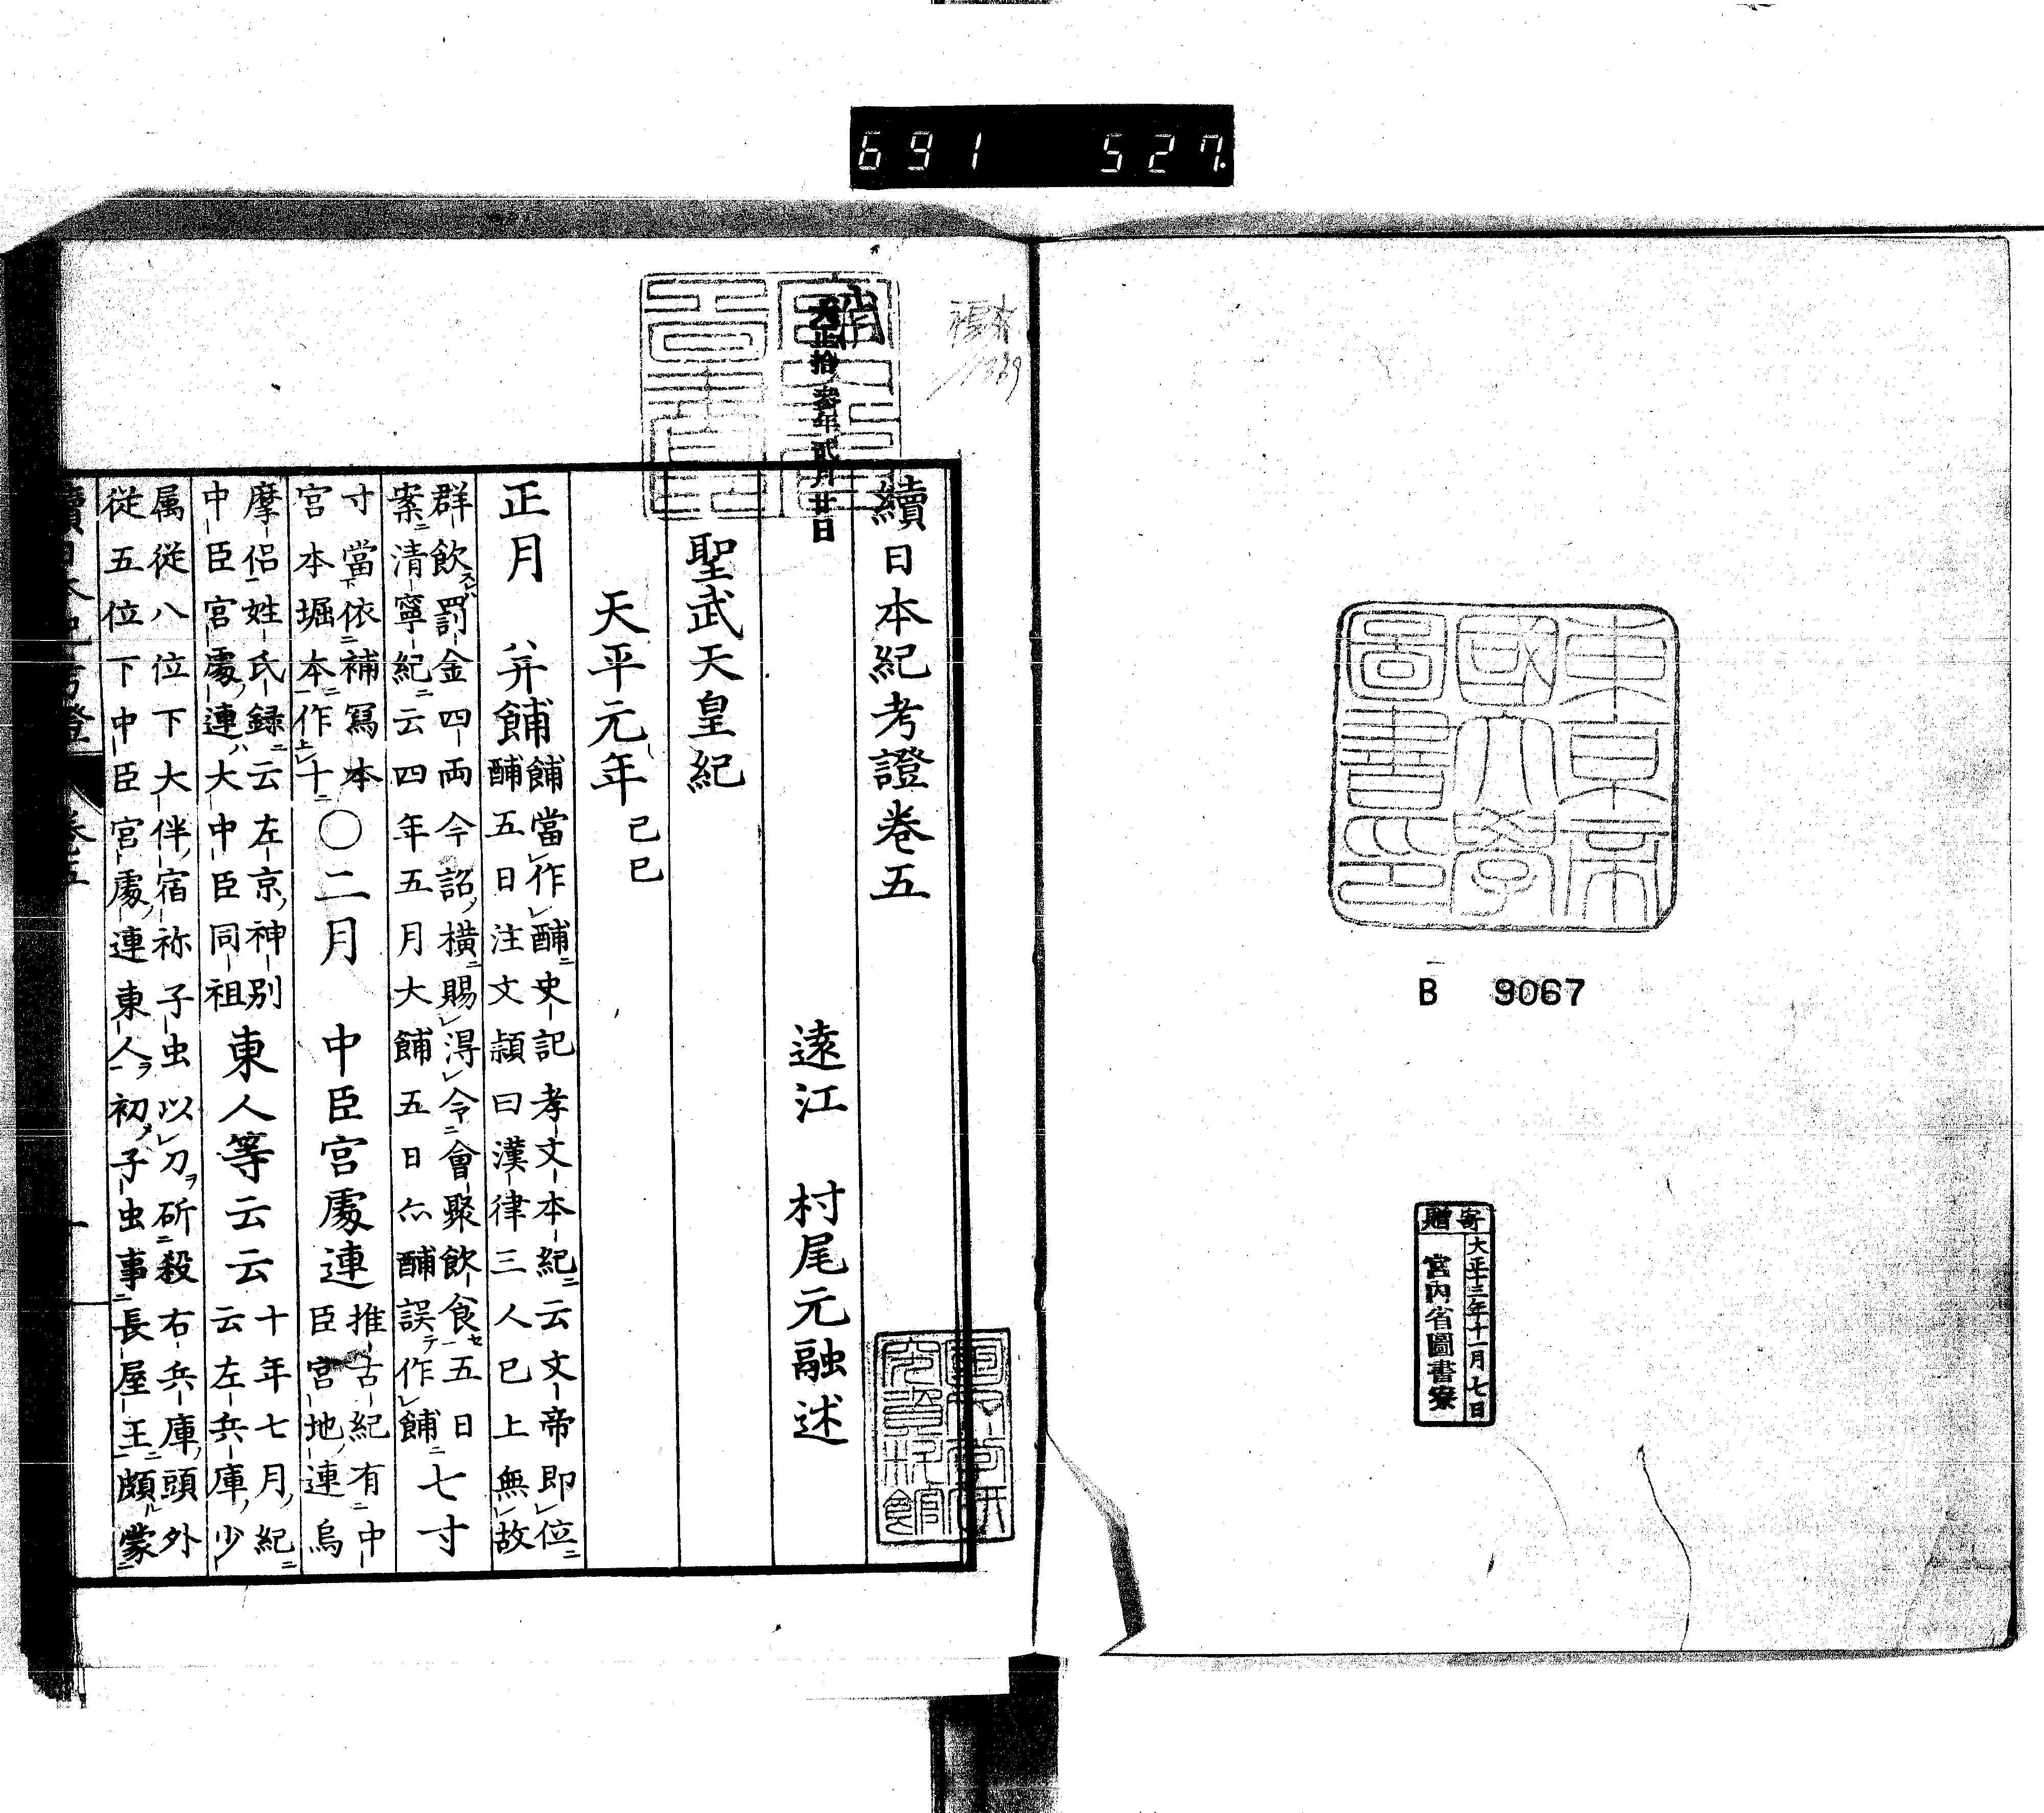 691 527.
東京帝
國大學
圖書印
B 9067
寄贈
大正十三年十一月七日
宮内省圖書寮
消
大正拾參年貳月廿日
續日本紀考證卷五
遠江 村尾元融述
聖武天皇紀
天平元年 己巳
正月 八 并餔 餔當作酺史記孝文本紀云文帝即位
酺五日注文頴曰漢律三人已上無故
群飲罰金四両今詔横賜得令會聚飲食五日
案清寧紀云四年五月大餔五日亦酺誤作餔 七寸
寸當依補冩本
宮本堀本作十 〇二月 中臣宮處連 推古紀有中
臣宮地連烏
摩侶姓氏録云左京神別
中臣宮處連大中臣同祖 東人等云云 十年七月紀
云左兵庫少
属從八位下大伴宿祢子虫以刀斫殺右兵庫頭外
從五位下中臣宮處連東人初子虫事長屋王頗蒙
續日本紀考證 卷五 一